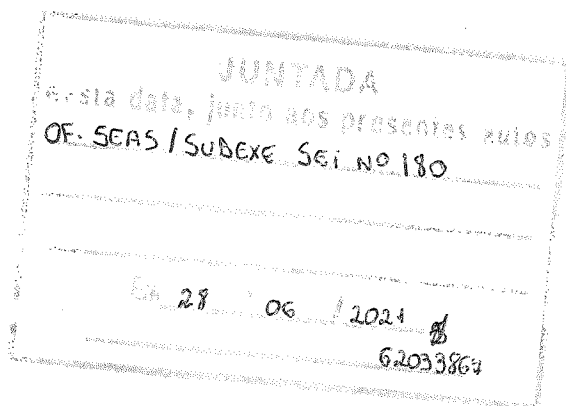 JUNTADA
Nesta data, junto aos presentes autos
OF. SEAS / SUBEXE SEI Nº 180
Em 28 / 06 / 2021
62033867